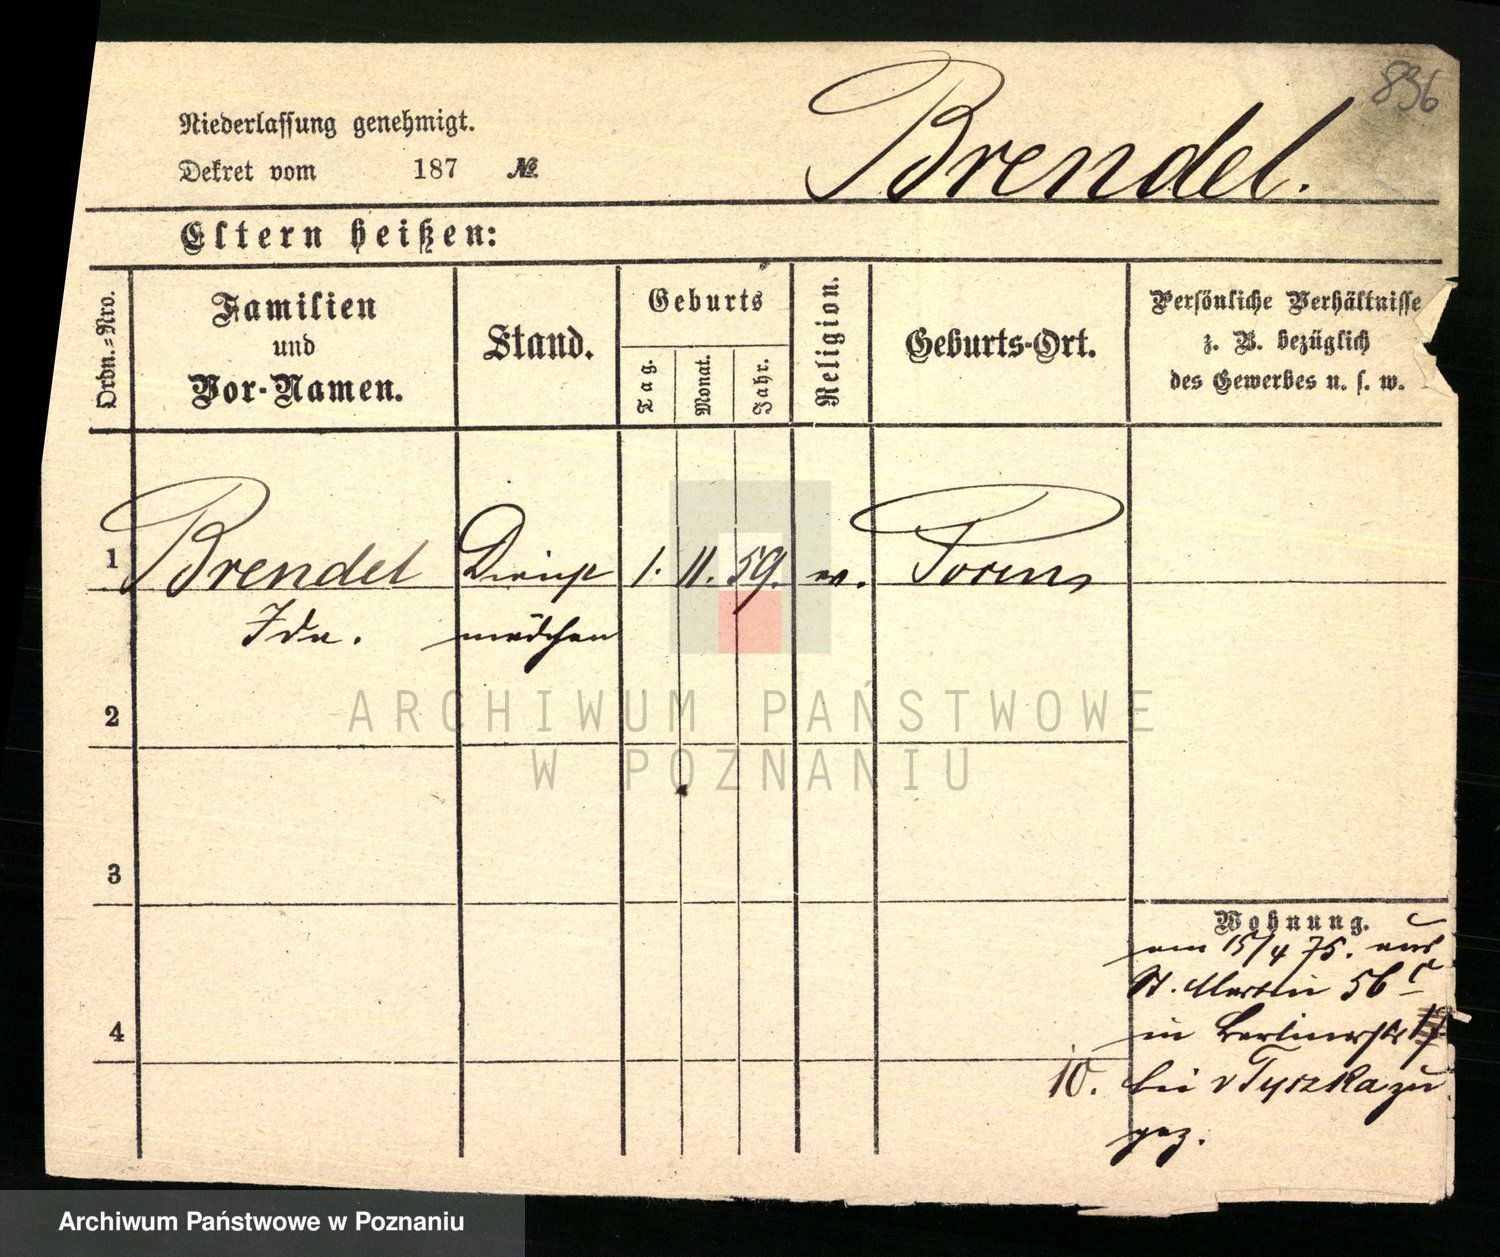 836
Niederlassung genehmigt.
Brendel.
Dekret vom 187 №
Eltern heißen:
Ordn.-Nro.
Familien
und
Vor-Namen.
Stand.
Geburts
Tag.
Monat.
Jahr.
Religion.
Geburts-Ort.
Persönliche Verhältnisse
z. B. bezüglich
des Gewerbes u. s. w.
1 Brendel Dienst 1. 11. 59. Posen
Ida. mädchen
2
3
4
Wohnung.
am 15/4 75. aus
St. Martin 56
in Berlinerstr
10. bei v Tyszka zu
gez.
ARCHIWUM PAŃSTWOWE
W POZNANIU
Archiwum Państwowe w Poznaniu